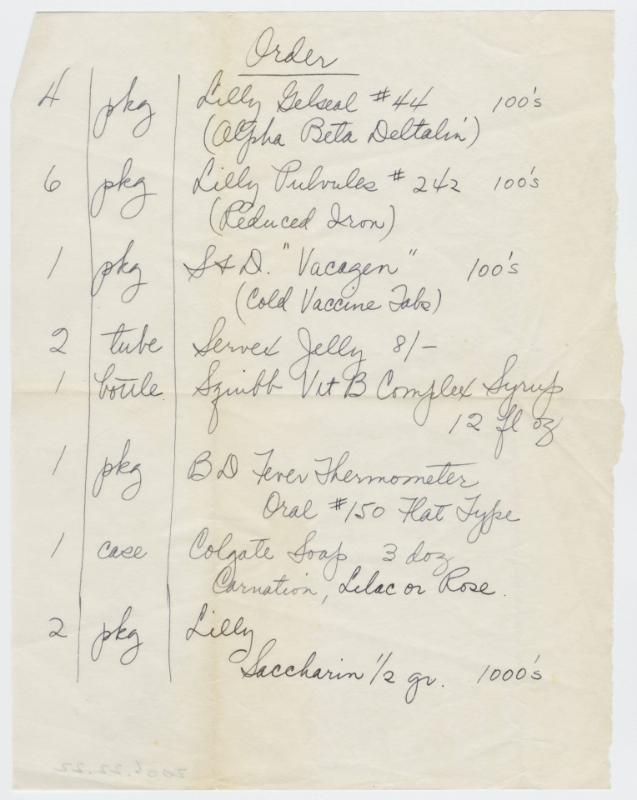 Order
4 pkg Lilly Gelseal #44 100's
(Alpha Beta Deltalin)
6 pkg Lilly Pulvules # 242 100's
(Reduced Iron)
1 pkg S & D. "Vacagen" 100's
(Cold Vaccine Tabs)
2 tube Servex Jelly 8/-
1 bottle Squibb Vit B Complex Syrup
12 fl oz
1 pkg B D Fever Thermometer
Oral #150 Flat Type
1 case Colgate Soap 3 doz
Carnation, Lilac or Rose.
2 pkg Lilly
Saccharin 1/2 gr. 1000's
2006.22.22